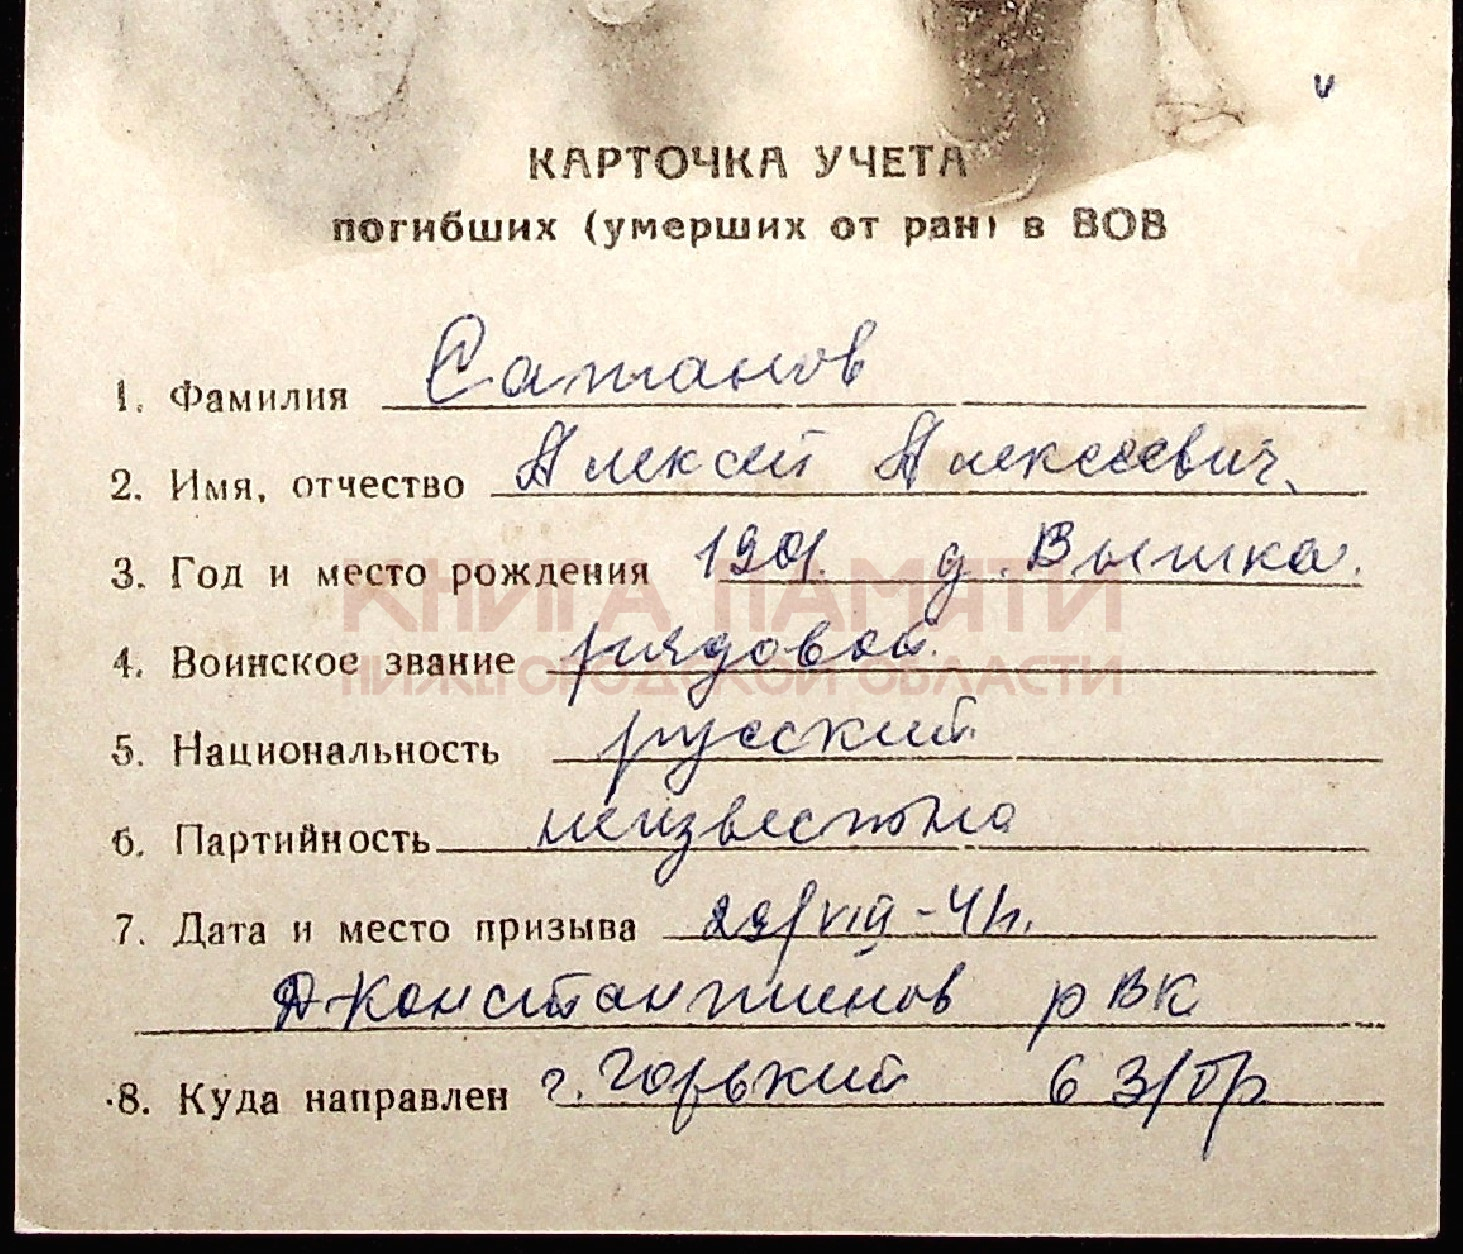 КАРТОЧКА УЧЕТА
погибших (умерших от ран) в ВОВ
1. Фамилия Сатанов
2. Имя, отчество Алексей Алексеевич
3. Год и место рождения 1901. д. Вышка.
КНИГА ПАМЯТИ
4. Воинское звание рядовой.
НИЖЕГОРОДСКОЙ ОБЛАСТИ
5. Национальность русский
6. Партийность неизвестно
7. Дата и место призыва 29/VIII-41г.
Д-Константинов рВК
8. Куда направлен г. Горький 6 З/бр